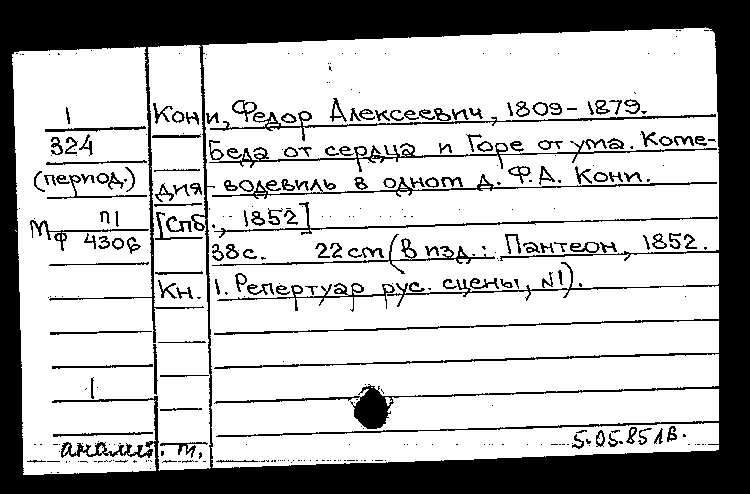 1 Кони, Федор Алексеевич, 1809-1879.
324 Беда от сердца и Горе от ума. Коме-
(период.) дия-водевиль в одном д. Ф.А. Кони.
п1 [Спб., 1852]
Мф 4306 38с. 22cm (В изд.: Пантеон, 1852.
Кн. 1. Репертуар рус. сцены, №1).
1
аналит. т. 5.05.85 лв.